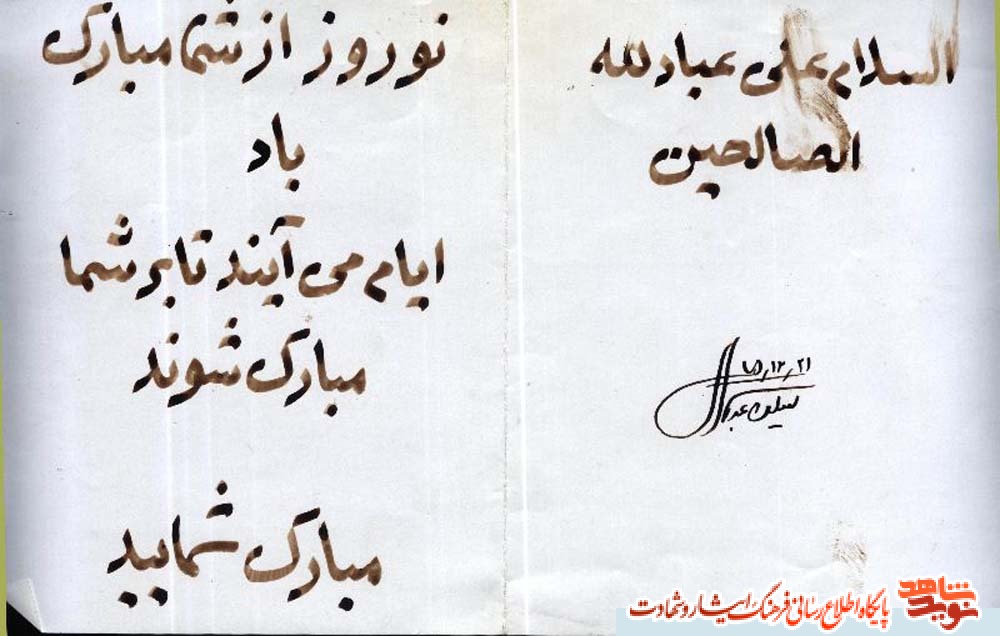 السلام علی عبادلله
الصالحین
۲۱ر۱۲ر
نوروز از شما مبارک
باد
ایام می آیند تا بر شما
مبارک شوند
مبارک شمایید
نوید شاهد
پایگاه اطلاع رسانی فرهنگ ایثار و شهادت